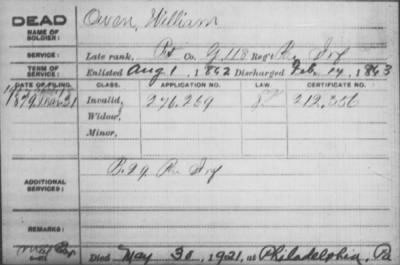 DEAD
NAME OF SOLDIER: Owen, William
SERVICE: Late rank, Pvt Co. G, 118 Reg't Pa. Inf
TERM OF SERVICE: Enlisted Aug 1, 1862 Discharged Feb. 14, 1863
DATE OF FILING. CLASS. APPLICATION NO. LAW. CERTIFICATE NO.
1879 Mar. 31 Invalid, 276,269 212,356
Widow,
Minor,
ADDITIONAL SERVICES: Pa. Inf
REMARKS:
Died May 30, 1921, at Philadelphia, Pa